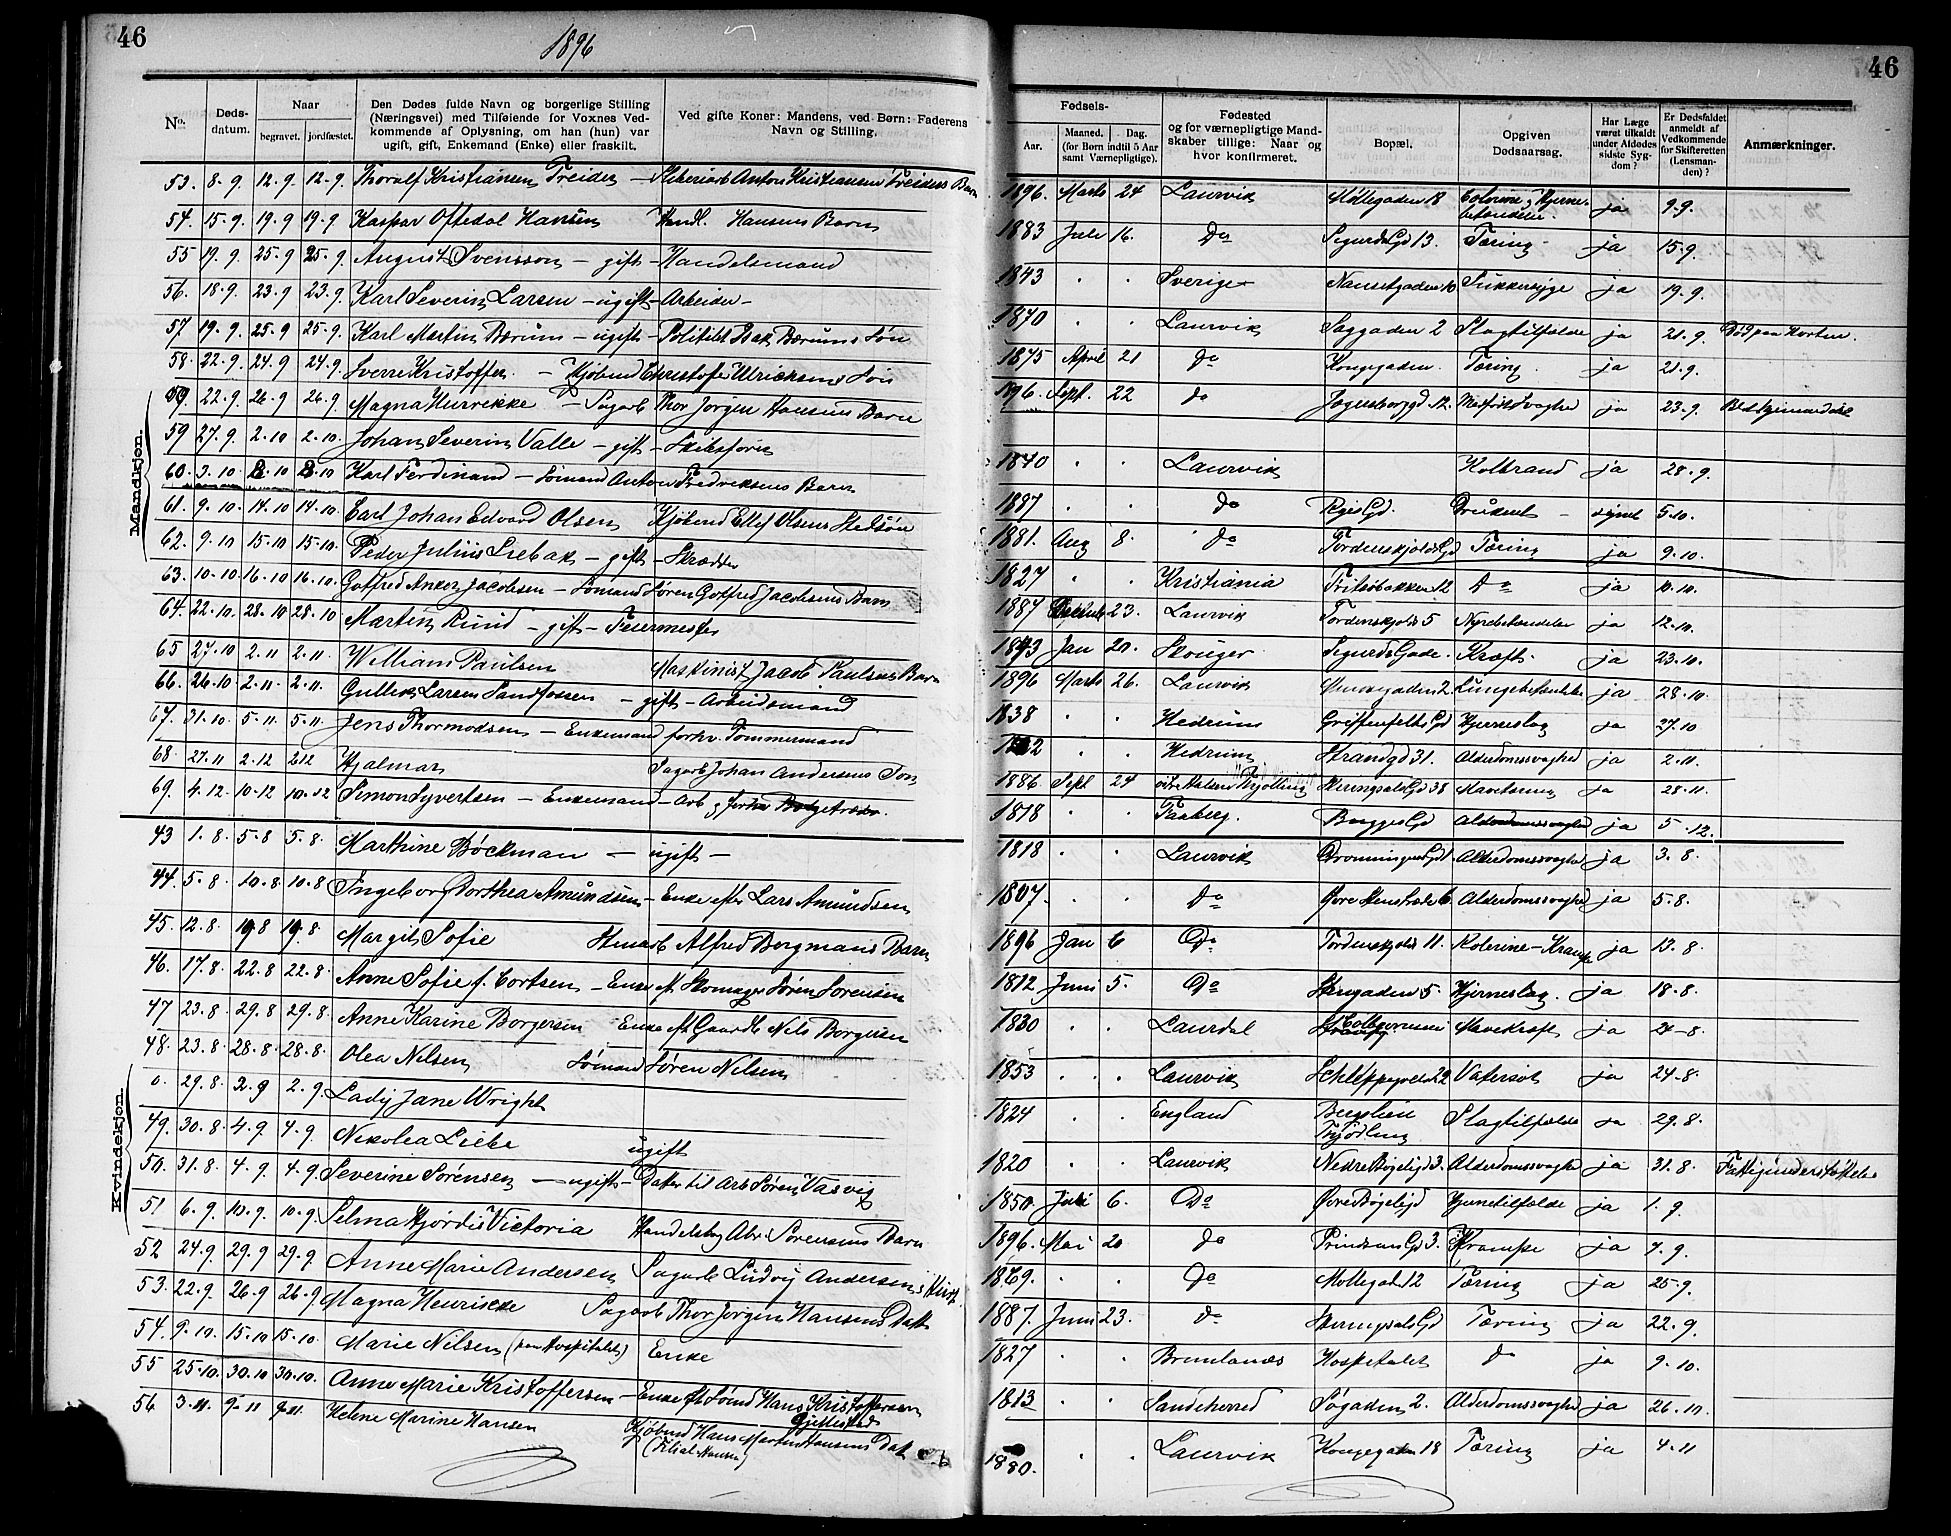 46
1896
No.
Døds-
datum.
Naar
begravet.
jordfæstet.
Den Dødes fulde Navn og borgerlige Stilling
(Næringsvei) med Tilføiende for Voxnes Ved-
kommende af Oplysning, om han (hun) var
ugift, gift, Enkemand (Enke) eller fraskilt.
Ved gifte Koner: Mandens, ved Børn: Faderens
Navn og Stilling.
Mandkjøn.
53. 8-9. 12-9. 12-9. Thoralf Kristiansen Treider Anton Kristiansen Treiders Barn
54. 15-9. 19-9 19-9. Kaspar Oftedal Hansen Handl. Hansens Barn
55 19.9. 25-9 25-9. August Svensson - gift - Handelsmand
56. 18-9. 23-9 23-9. Karl Severin Larsen - ugift - Arbeider -
57 19-9. 25-9 25-9. Karl Martin Bærum - ugift - Politibt Isak Bærums Søn
58. 22-9. 24-9 24-9. Sverre Kristoffer. - Kjøbmd Christoffer Ulricksens Søn
22-9. 26-9 26-9. Magna Henrikke - Sagarb Thor Jørgen Hansens Barn
59 27-9. 2-10 2-10. Johan Severin Valle - gift - Skibsfører
60. 3-10 8-10 8-10 Karl Ferdinand - Sømand Anton Fredriksens Barn
61. 9-10 14-10 14-10. Carl Johan Edvard Olsen Kjøbmd Ellef Olsens Stedsøn
62. 9-10 15-10 15-10. Peder Julius Liebak - gift - Skrædder
63. 10-10 16-10 16-10. Gotfred Anker Jacobsen - Sømand Søren Gotfred Jacobsens Barn
64. 22-10. 28-10 28-10 Martin Ruud - gift - Feiermester
65 27-10 2-11 2-11. William Paulsen Maskinist Jacob Paulsens Barn
66. 26-10 2-11. 2-11. Gullik Larsen Sandfossen - gift - Arbeidsmand
67. 31-10. 5-11. 5-11. Jens Thormodsen - Enkemand forhv. Tømmermand
68. 21-11 2-12 2-12 Hjalmar Sagarb Johan Andersens Søn
69. 4-12. 10-12 10-12 Simon Syvertsen - Enkemand - Arb
Kvindekjøn.
43 1-8. 5-8 5-8. Marthine Bøckman - ugift -
44. 5-8. 10-8. 10-8 Ingeborg Dorthea Amundsen - Enke efter Lars Amundsen
45. 12-8. 19-8 19-8. Margit Sofie Alfred Borgmans Barn
46. 17-8. 22-8 22-8. Anne Sofie f. Cortsen - Enke eft Skomager Søren Sørensen
47 23-8. 29-8 29-8. Anne Karine Borgersen Enke eft Gaardb Nils Borgersen
48. 23-8. 28-8. 28-8. Olea Nilsen Sømand Søren Nilsen
0. 29-8. 2-9 2-9. Lady Jane Wright
49. 30-8. 4-9. 4-9. Nikolea Liebe ugift
50. 31-8. 4-9. 4-9. Severine Sørensen - ugift - Datter til Arb Søren Vasvig
51 6-9. 10-9. 10-9. Selma Hjørdis Victoria Handelsbg Abr. Sørensens Barn
52 24-9. 29-9 29-9. Anne Marie Andersen Sagarb Ludvig Andersens
53. 22-9. 26-9 26-9 Magna Henrikke Sagarb Thor Jørgen Hansens Datt
54. 9-10. 15-10 15-10. Marie Nilsen (paa Hospitalet) Enke
55 25-10. 30-10 30-10. Anne Marie Kristoffersen - Enke eft Sømd Hans Kristoffersen
Gjellestad
56 3-11. 9-11 9-11. Helene Marine Hansen Kjøbmd Hans Martin Hansens Dat
46
Fødsels-
Aar.
Maaned. Dag.
(for Børn indtil 5 Aar
samt Værnepligtige).
Fødested
og for værnepligtige Mand-
skaber tillige: Naar og
hvor konfirmeret.
Bopæl.
Opgiven
Dødsaarsag.
Har Læge
været tilkaldt
under Afdødes
sidste Syg-
dom?
Er Dødsfaldet
anmeldt af
Vedkommende
for Skifteretten
(Lensman-
den)?
Anmærkninger.
1896. Marts 24 Laurvik Møllegaden 18 Colerine og Hjerne-
betændelse ja 9-9.
1883 Juli 16. Do Sigurds Gd 13. Tæring. ja 15-9.
1843 Sverige Nansetgaden 10 Sukkersyge ja 19-9.
1870 Laurvik Saggaden 2 Slagtilfælde ja 21-9. Død paa Horten.
1875 April 21 do Kongegaden. Tæring. ja 21-9.
1896. Sept. 22 do Jegersborggd 12. Medfødt Svaghed ja 23-9.
1840 Laurvik Koldbrand ja 28-9.
1887 do Druknet - 5-10.
1881. Aug 8. do Tordenskjolds Gd Tæring ja 9-10.
1827 Kristiania Fritsøbakken 12 Do ja 10-10.
1887 23. Laurvik Tordenskjolds 5 Nyrebetændelse ja 12-10.
1843 Jan 20. Skouger Sigurds Gade. Kræft. ja 23-10.
1896 Marts 26. Laurvik 2. Lungebetændelse ja 28-10.
1838 Hedrum Griffenfelts Gd Hjerneslag ja 27-10
Hedrum Strandgd 31. Alderdomssvaghed ja 2-11.
1886 Sept 24 Tjølling Herregaards Gd 38 Mavetæring ja 28-11.
1818 Faaberg. Brygge Gd Alderdomssvaghed ja 5-12.
1818 Laurvik Dronningens Gd 1 Alderdomssvaghed ja 3-8.
1807. Do Øvre 6. Alderdomssvaghed ja 5-8.
1896 Jan 6 Do Tordenskjolds 11. Kolerine - Krampe ja 13-8.
1812 Juni 5. Do Stengaden 5. Hjerneslag. ja 18-8.
1830 Laurdal Mavekræft ja 24-8.
1853 Laurvik 22 Vatersot ja 24-8.
1824 England Bergslien
Tjødling Slagtilfælde ja 29-8.
1820 Laurvik Nedre Bøgeligd 3. Alderdomssvaghed ja 31-8. Fattigunderstøttelse
1850 Juli 6. Do Øvre Bøgeligd Hjernetilfælde ja 1-9.
1896. Mai 20 do Prindsens Gd 3. Krampe ja 7-9.
1869. do Møllegad 12 Tæring ja 25-9.
1887. Juni 23. do Herregaards Gd Tæring ja 22-9.
1827 Brunlanæs Hospitalet do ja 9-10.
1813 Sandeherred Søgaden 2. Alderdomssvaghed ja 26-10.
1880. Laurvik Kongegaden 18 Tæring ja 4-11